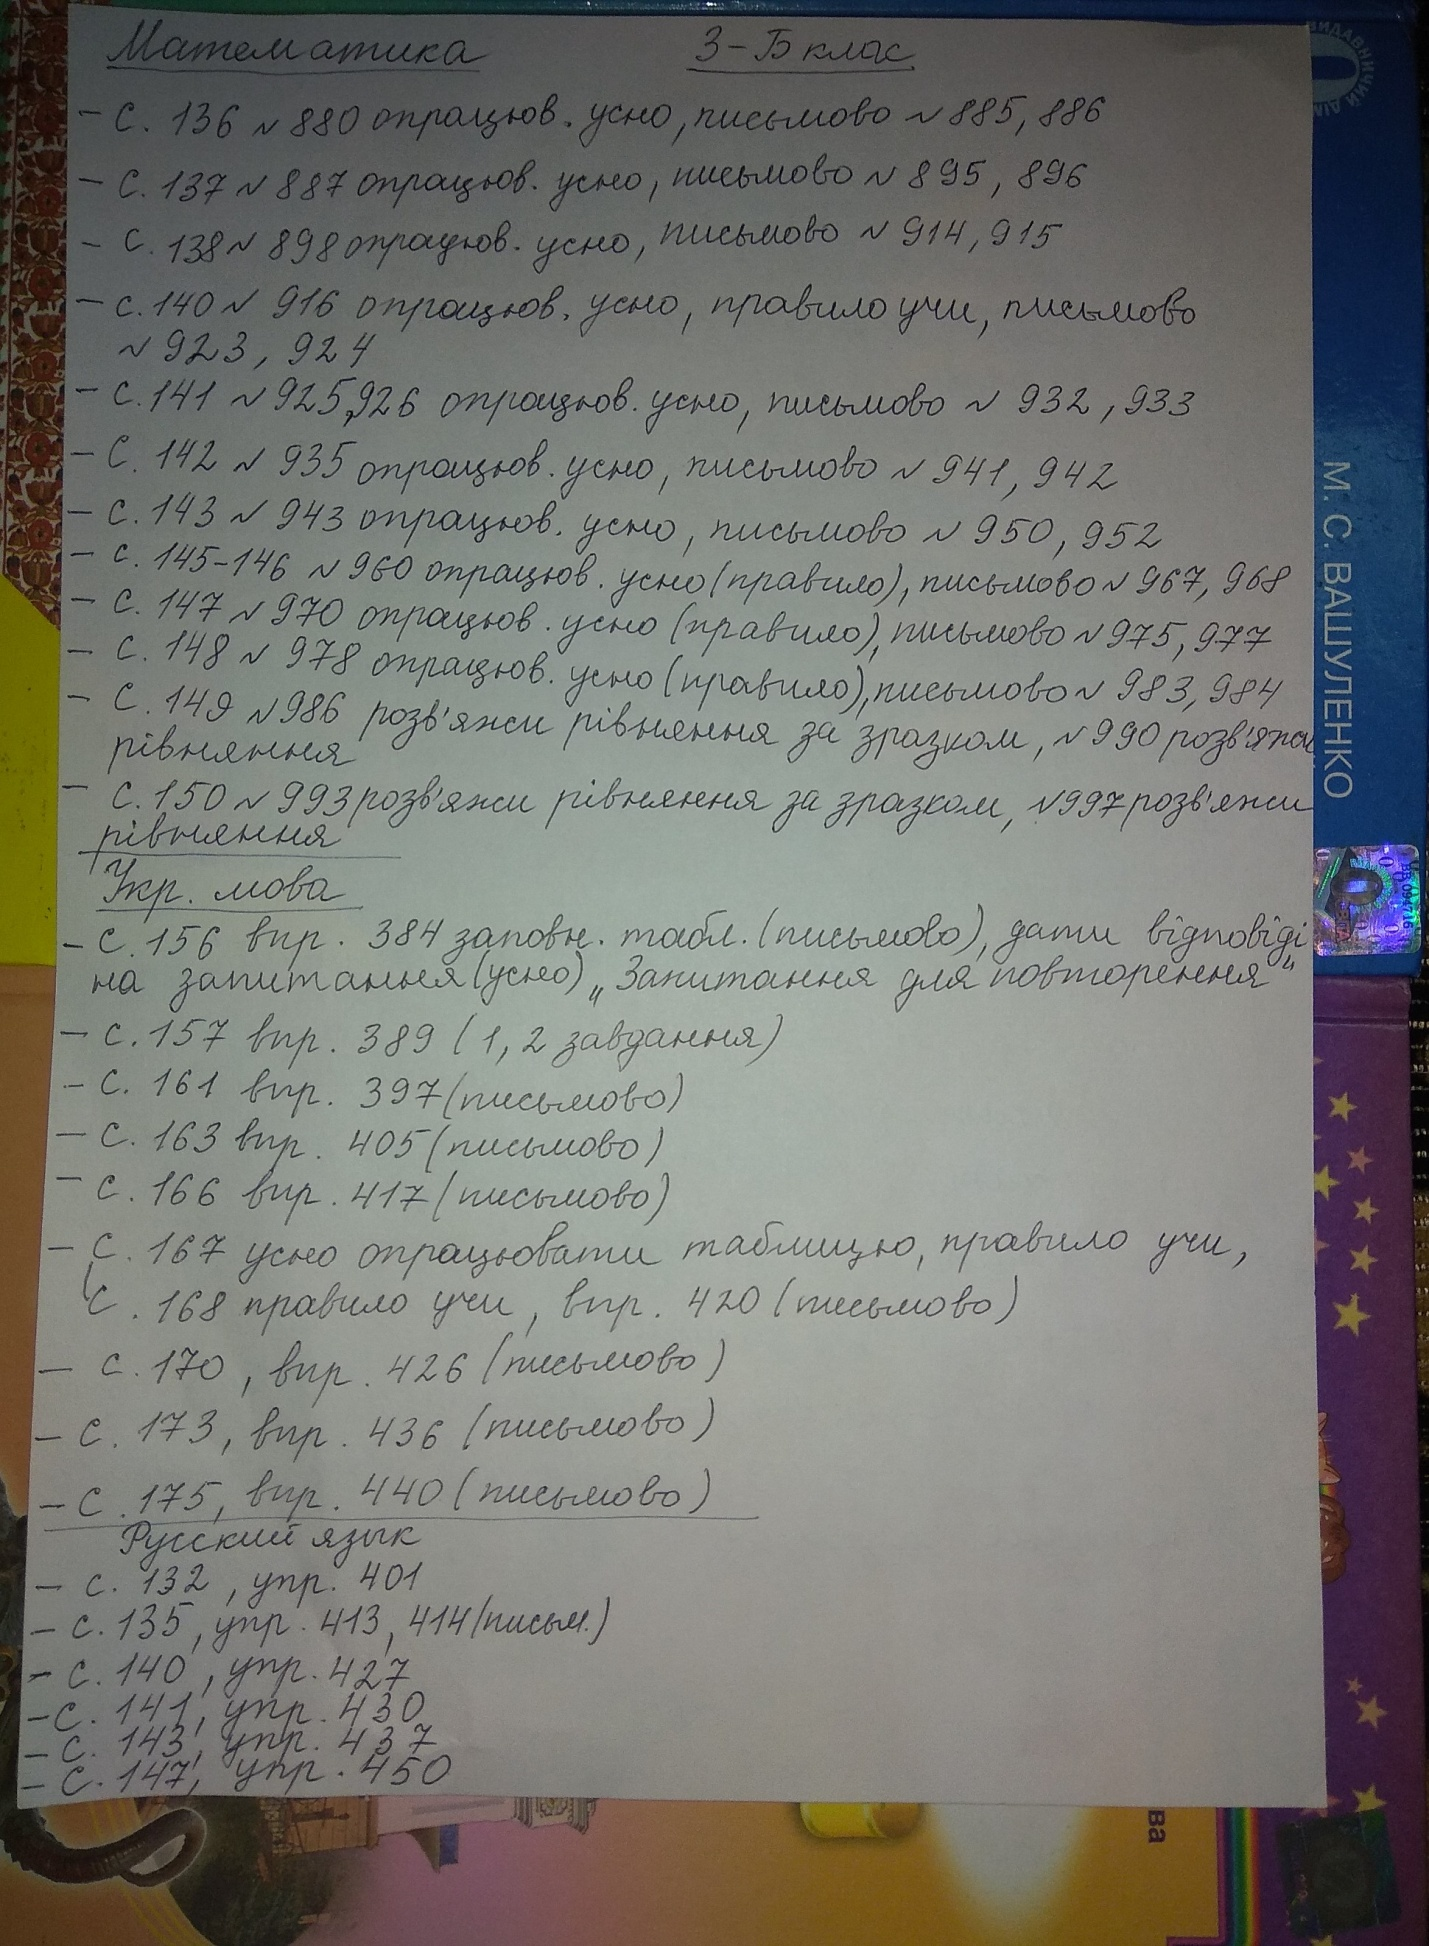 Математика 3-Б клас
- с. 136 №880 опрацюв. усно, письмово №885, 886
- с. 137 №887 опрацюв. усно, письмово №895, 896
- с. 138 №898 опрацюв. усно, письмово №914, 915
- с. 140 №916 опрацюв. усно, правило учи, письмово
№923, 924
- с. 141 №925,926 опрацюв. усно, письмово №932, 933
- с. 142 №935 опрацюв. усно, письмово №941, 942
- с. 143 №943 опрацюв. усно, письмово №950, 952
- с. 145-146 №960 опрацюв. усно (правило), письмово №967, 968
- с. 147 №970 опрацюв. усно (правило), письмово №975, 977
- с. 148 №978 опрацюв. усно (правило), письмово №983, 984
- с. 149 №986 розв'яжи рівняння за зразком, №990 розв'яжи
рівняння
- с. 150 №993 розв'яжи рівняння за зразком, №997 розв'яжи
рівняння
Укр. мова
- с. 156 впр. 384 заповн. табл. (письмово), дати відповіді
на запитання (усно) „Запитання для повторення"
- с. 157 впр. 389 (1, 2 завдання)
- с. 161 впр. 397 (письмово)
- с. 163 впр. 405 (письмово)
- с. 166 впр. 417 (письмово)
- с. 167 усно опрацювати таблицю, правило учи,
с. 168 правило учи, впр. 420 (письмово)
- с. 170, впр. 426 (письмово)
- с. 173, впр. 436 (письмово)
- с. 175, впр. 440 (письмово)
Русский язык
- с. 132, упр. 401
- с. 135, упр. 413, 414 (письм.)
- с. 140, упр. 427
- с. 141, упр. 430
- с. 143, упр. 437
- с. 147, упр. 450
М. С. ВАШУЛЕНКО
ВИДАВНИЧИЙ ДІМ
ва